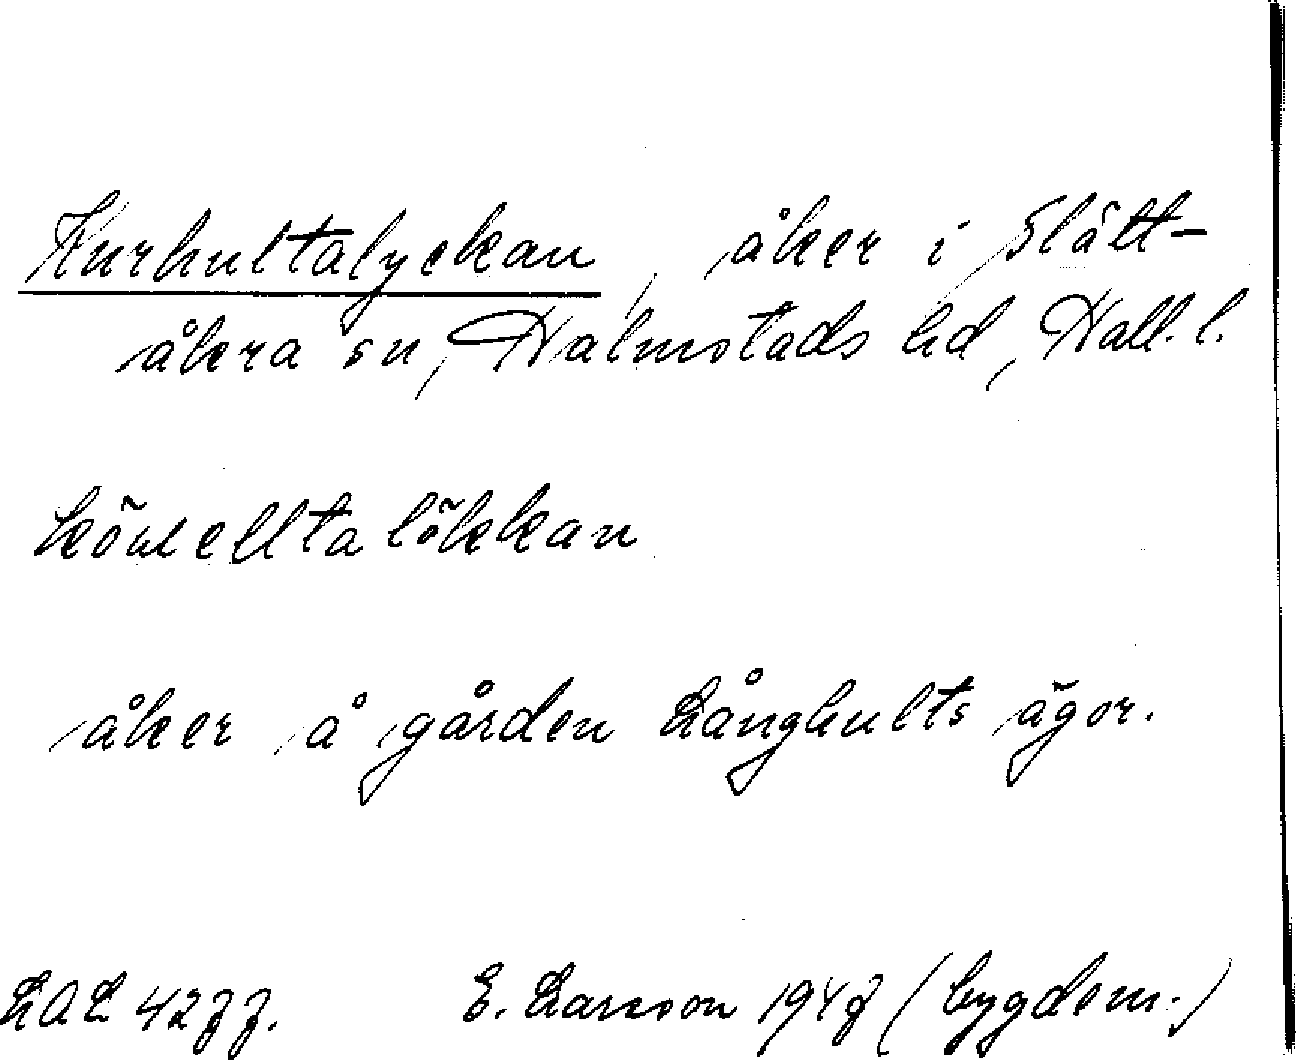 Kurhultalyckan, åker i Slätt-
åkra sn, Halmstads hd, Hall. l.
åker å gården Långhults ägor.
LAL 4277. E. Larsson 1947 (bygdem.)